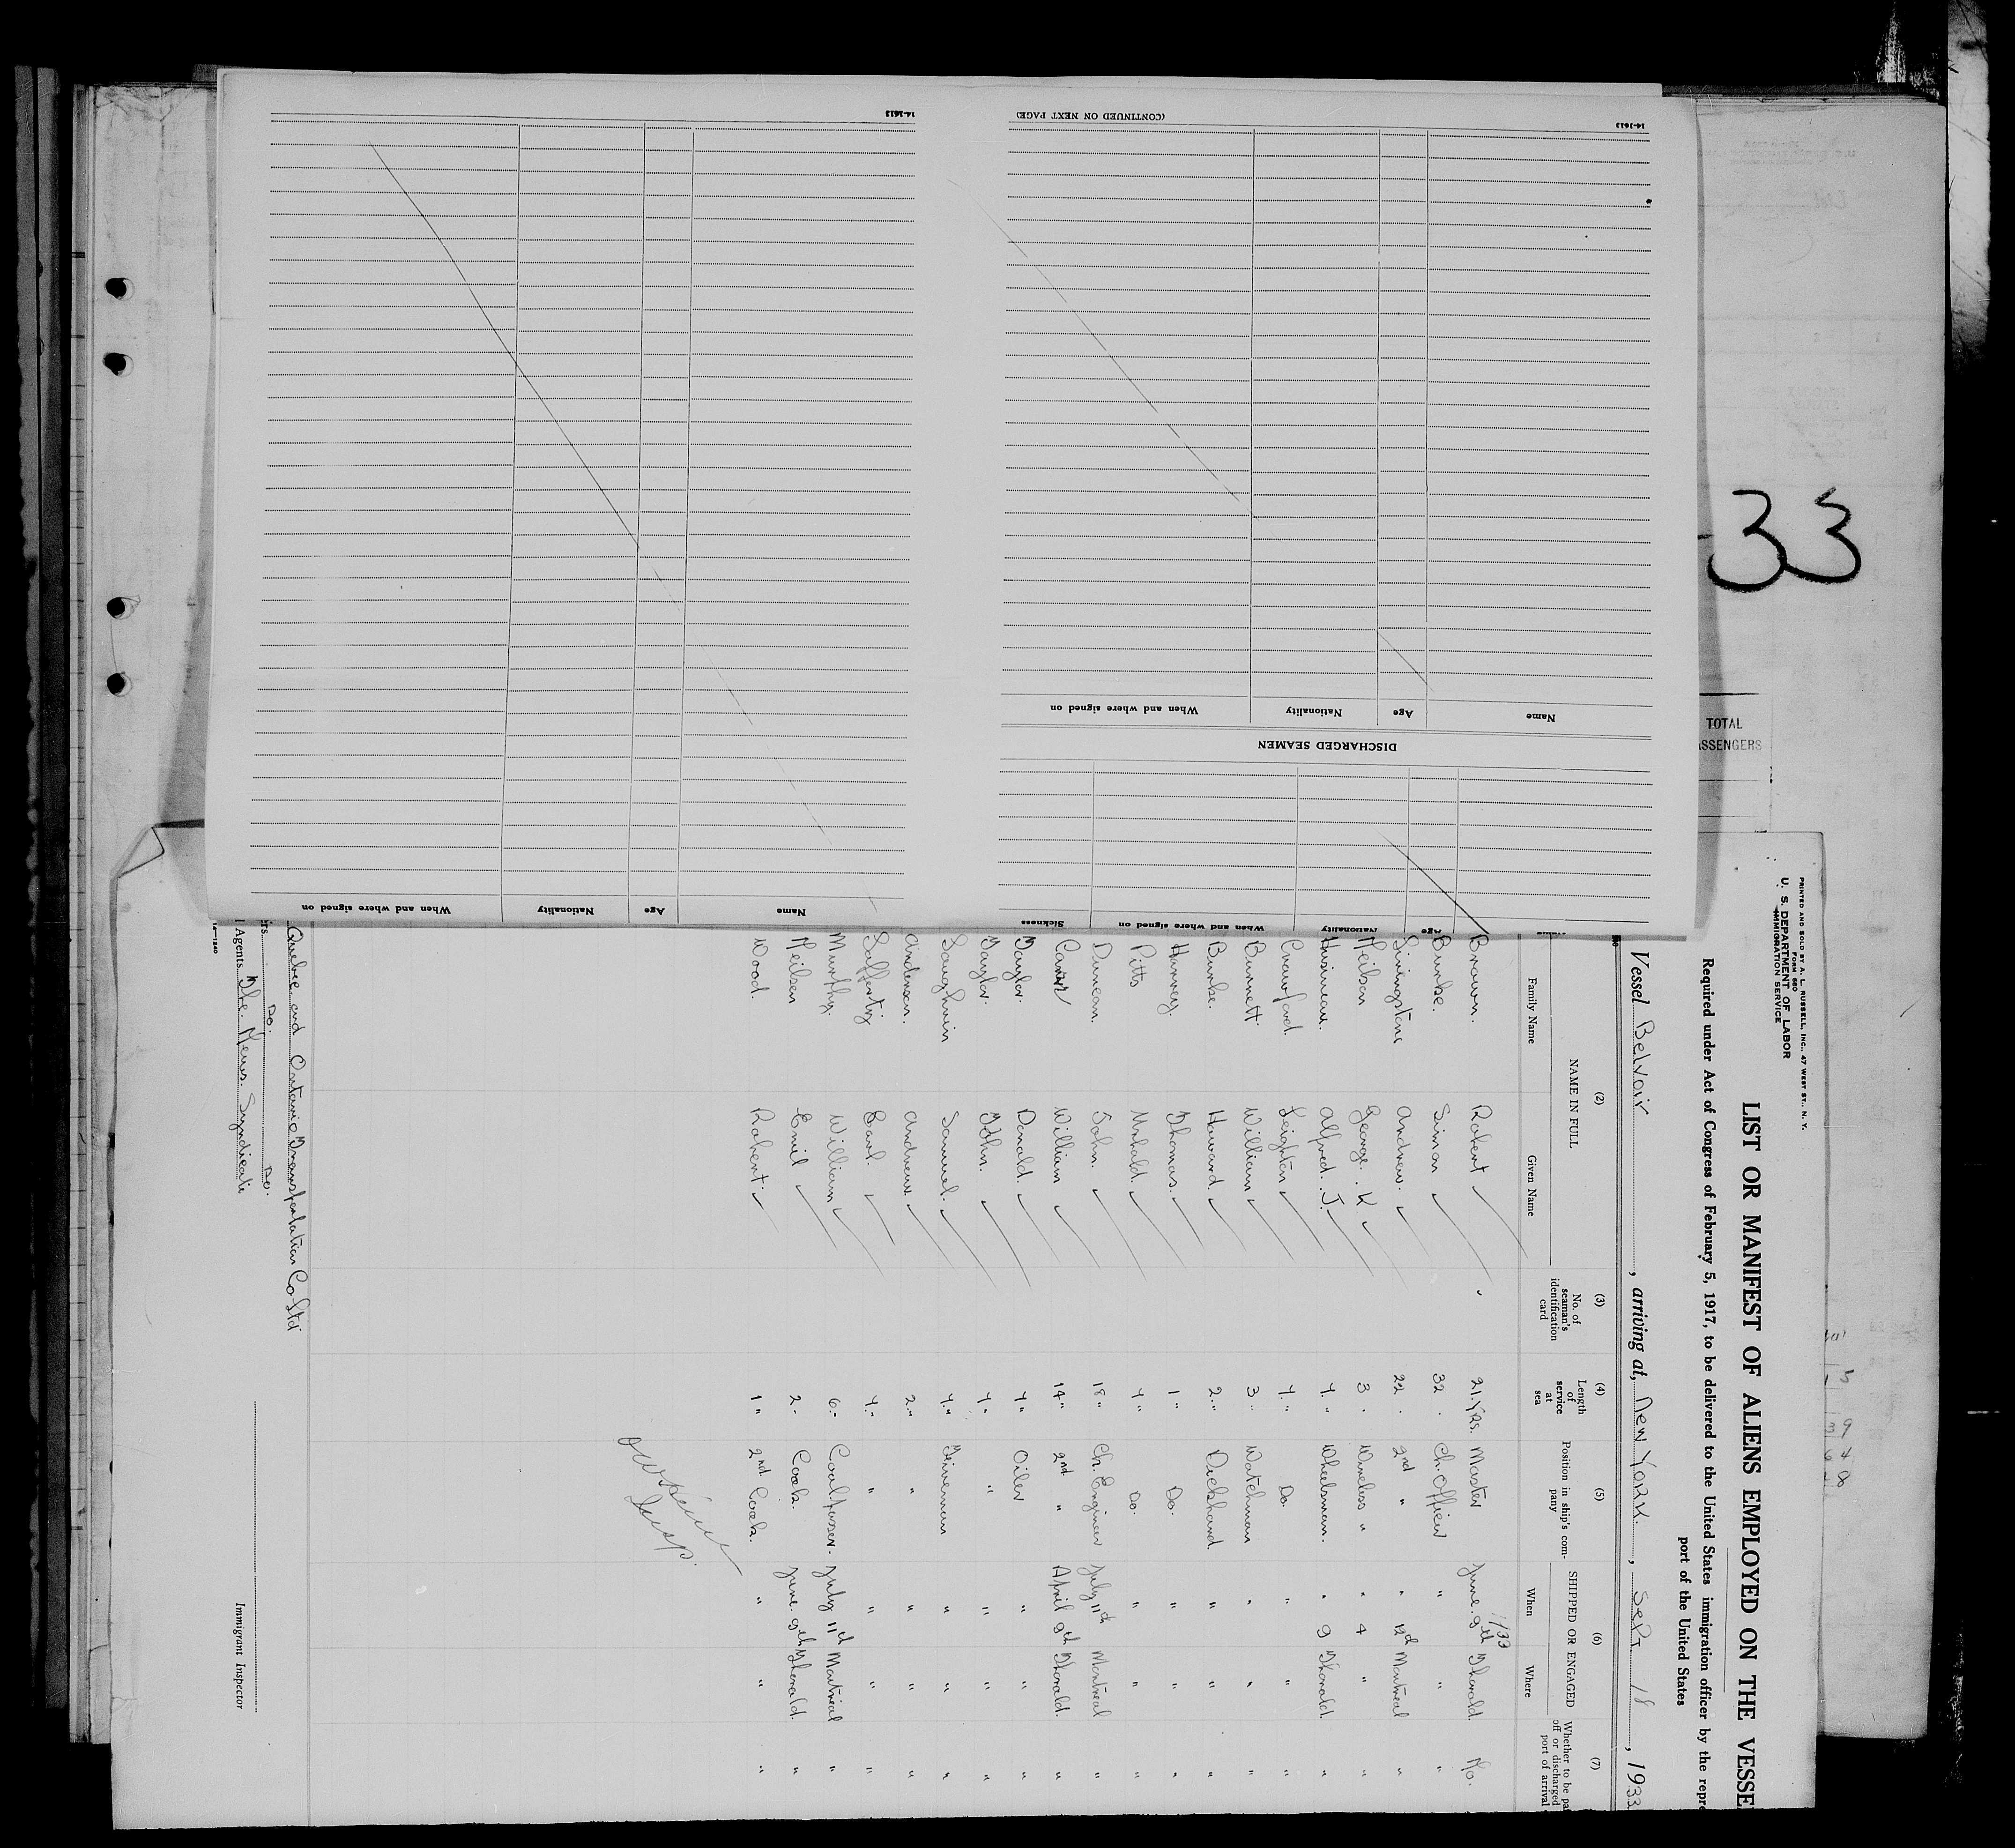 14-1613
(CONTINUED ON NEXT PAGE)
14-1613
When and where signed on
Nationality
Age
Name
DISCHARGED SEAMEN
Sickness
When and where signed on
Nationality
Age
When and where signed on
Nationality
Age
Name
33
TOTAL
ASSENGERS
PRINTED AND SOLD BY A. L. RUSSELL, INC., 47 WEST ST., N. Y.
FORM 680
U. S. DEPARTMENT OF LABOR
IMMIGRATION SERVICE
LIST OR MANIFEST OF ALIENS EMPLOYED ON THE VESSE
Required under Act of Congress of February 5, 1917, to be delivered to the United States immigration officer by the repre
port of the United States
Vessel Belvoir, arriving at, New York., Sept 18, 1933
(2) (3) (4) (5) (6) (7)
NAME IN FULL
Family Name Given Name
No. of seaman's identification card
Length of service at sea
Position in ship's company
SHIPPED OR ENGAGED
When Where
Whether to be pai
off or discharged
port of arrival
1/33
Brown. Robert 21. Yrs. Master June. 9th Thorold. No.
Burke. Simon 32 " Ch. Officer " " "
Livingstone Andrew. 22 " 2nd " " 12th Montreal "
Neilson George. K 3 " Wireless " " 4 " "
Husineau. Alfred. J. 4. " Wheelsman. " 9 Thorold "
Crawford. Leighton 4. " Do. " " "
Burnett. William 3 " Watchman " " "
Burke. Howard 2. " Deckhand " " "
Harvey. Thomas. 1 " Do. " " "
Pitts Donald 4 " Do. " " "
Duncan. John. 18 " Ch. Engineer July 11th Montreal "
Carr William 14 " 2nd " April 9th Thorold. "
Taylor. Donald. 4 " Oiler " " "
Taylor. John. 4 " " " " "
Loughrin Samuel. 4 " Fireman " " "
Andersen. Andrew 2 " " " " "
Lafferty. Earl. 4. " " " " "
Murphy. William 6. " Coalpasser. July 11th Montreal "
Neilsen Emil 2 " Cook. June. 9th Thorold. "
Wood. Robert. 1 " 2nd Cook. " " "
Insp.
Quebec and Ontario Transportation Co Ltd
rs. Do. Do.
Agents The. Mews. Syndicate
Immigrant Inspector
14—1240